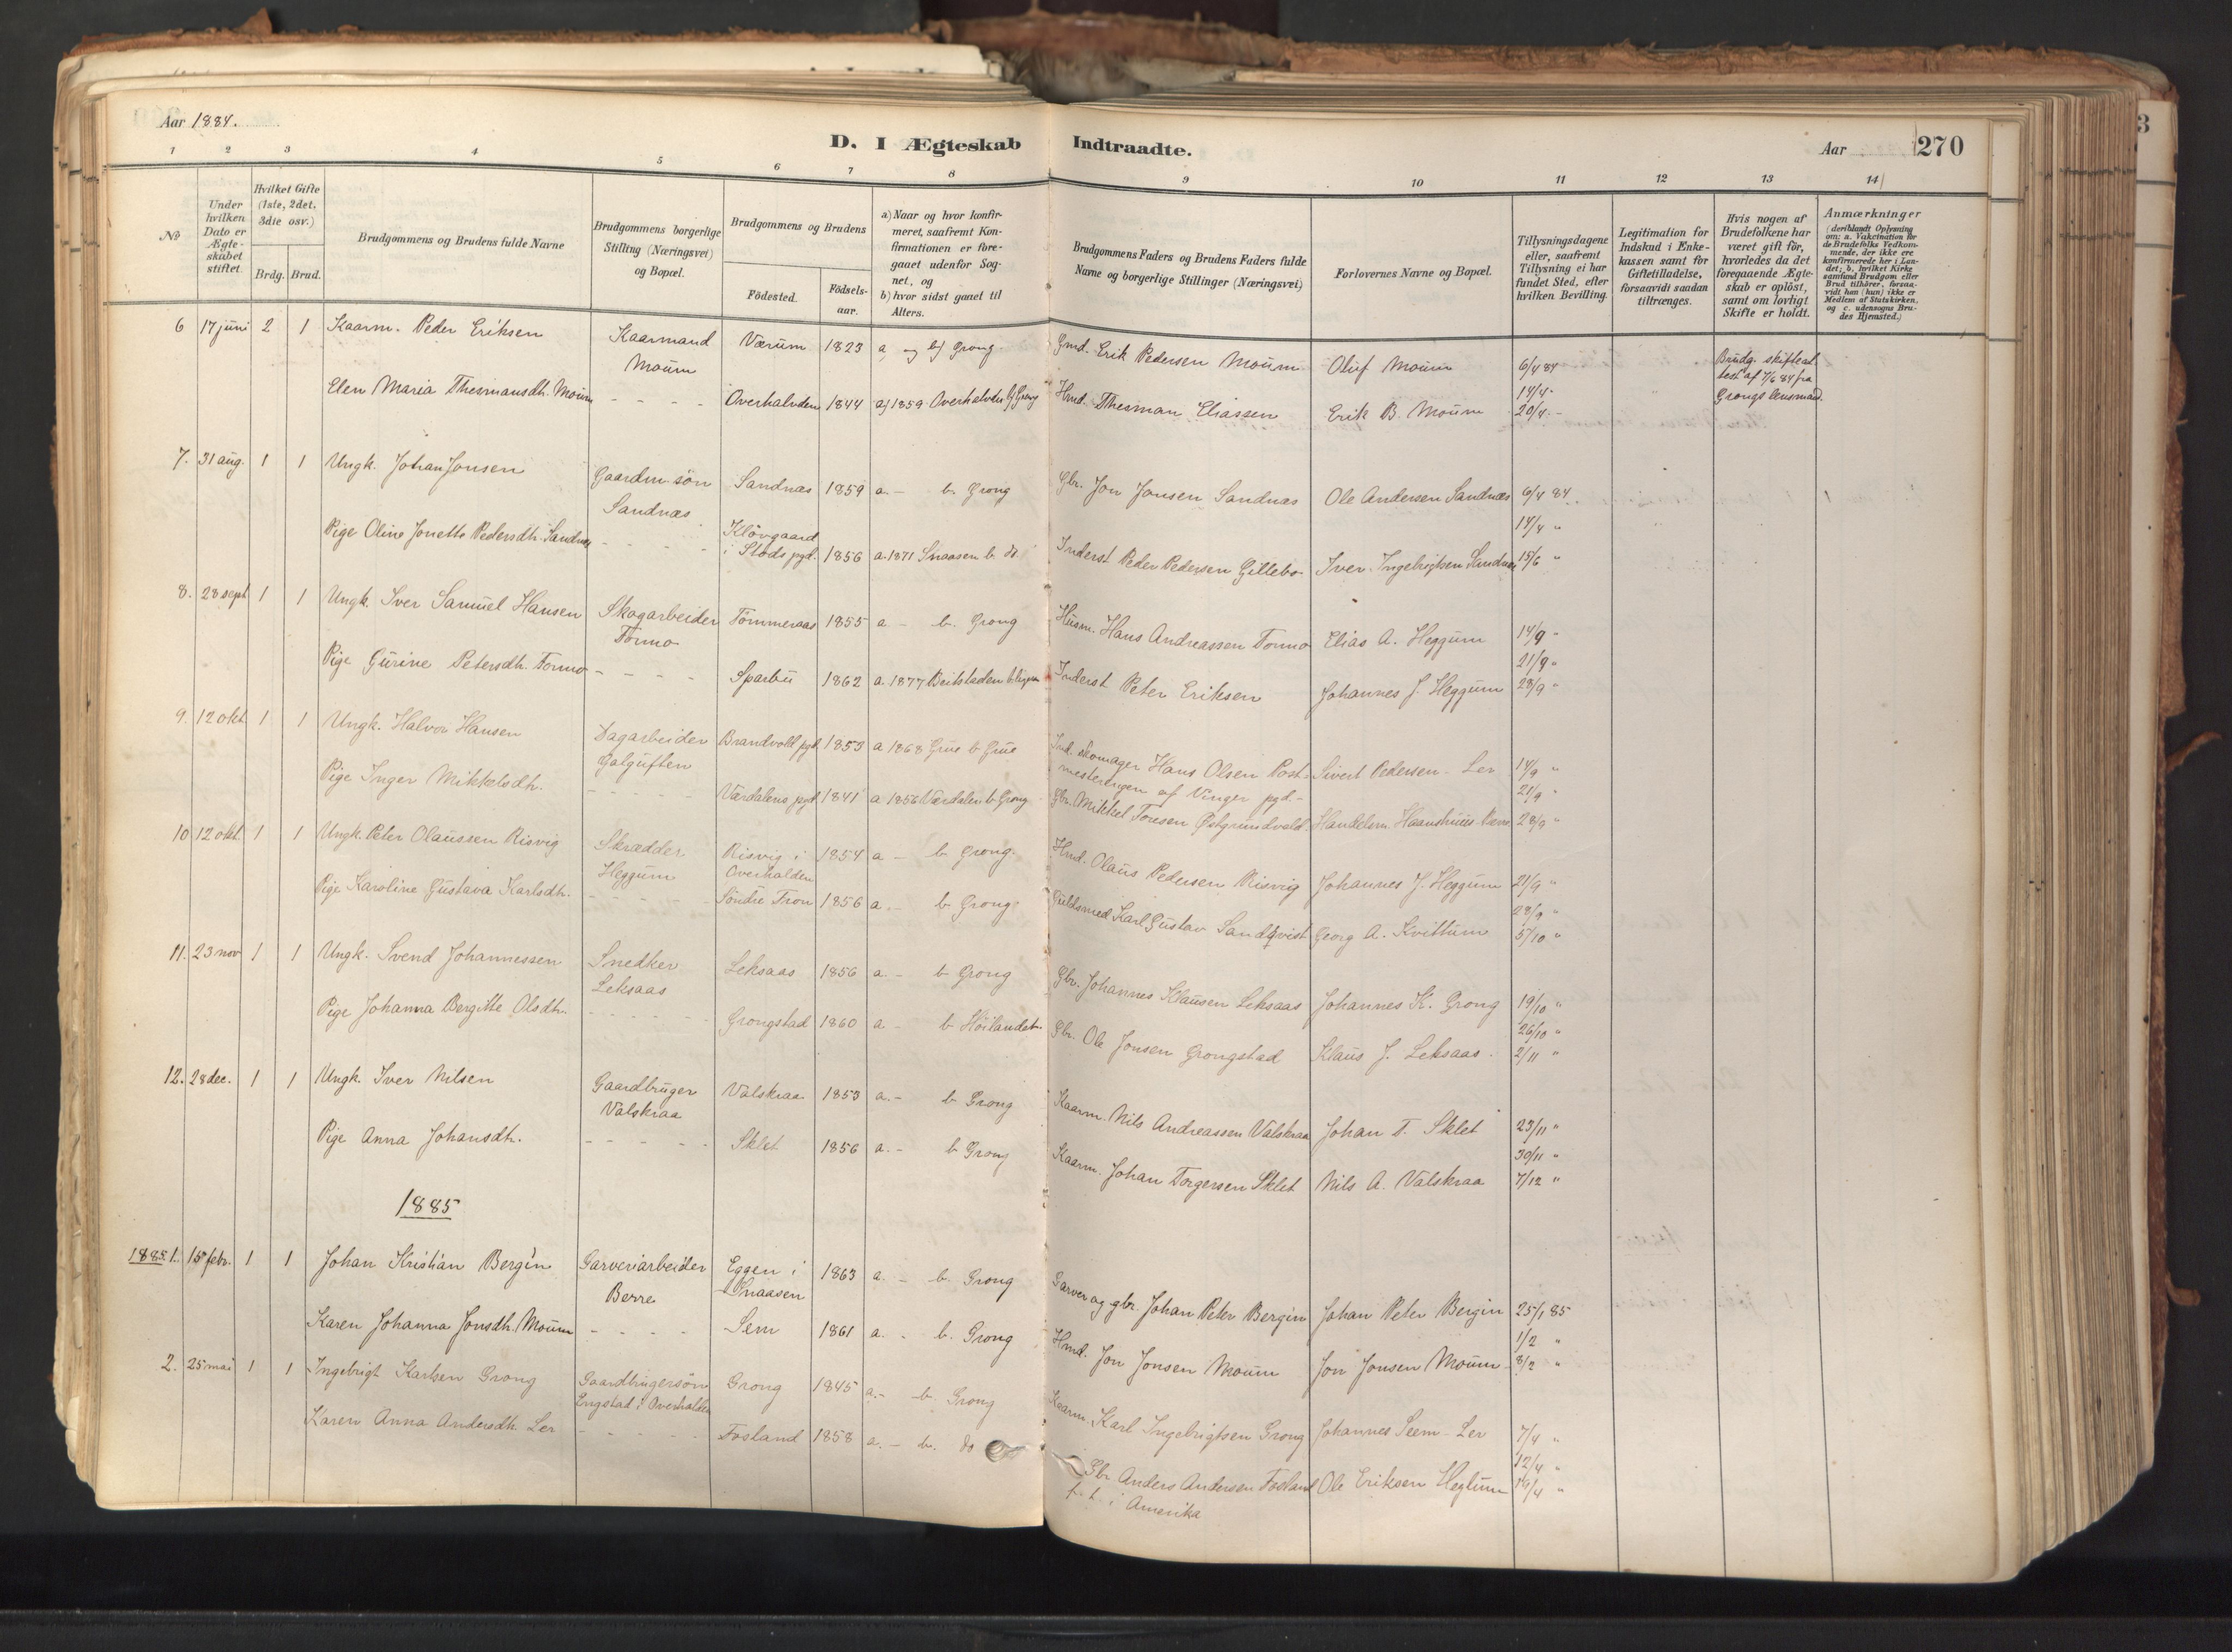 Aar 1884.
D. I Ægteskab Indtraadte.
Aar 270
3
1 2 3 4 5 6 7 8 9 10 11 12 13 14
No
Under hvilken Dato er Ægteskabet stiftet.
Hvilket Gifte (1ste, 2det, 3die osv.)
Brdg. Brud.
Brudgommens og Brudens fulde Navne
Brudgommens borgerlige Stilling (Næringsvei) og Bopæl.
Brudgommens og Brudens
Födested.
Födsels-aar.
a) Naar og hvor konfirmeret, saafremt Konfirmationen er foregaaet udenfor Sognet, og
b) hvor sidst gaaet til Alters.
Brudgommens Faders og Brudens Faders fulde Navne og borgerlige Stillinger (Næringsvei)
Forlovernes Navne og Bopæl.
Tillysningsdagene eller, saafremt Tillysning ei har fundet Sted, efter hvilken Bevilling.
Legitimation for Indskud i Enkekassen samt for Giftetilladelse, forsaavidt saadan tiltrænges.
Hvis nogen af Brudefolkene har været gift för, hvorledes da det foregaaende Ægteskab er oplöst, samt om lovligt Skifte er holdt.
Anmærkninger (deriblandt Oplysning om: a. Vakcination for de Brudefolks Vedkommende, der ikke ere konfirmerede her i Landet; b. hvilket Kirkesamfund Brudgom eller Brud tilhörer, forsaavidt han (hun) ikke er Medlem af Statskirken, og c. udensogns Brudes Hjemsted.)
6 17 juni 2 1 Kaarm. Peder Eriksen Kaarmand Moum Værum 1823 a og b) Grong Gmd. Erik Pedersen Moum Oluf Moum 6/4 84 Brudg. skifteattest af 7/6 84 fra Grongs lensmand.
Elen Maria Thesmansdh. Moum - - - - Overhalvden 1844 a) 1859 Overhalvden b) Grong Hmd. Thesman Eliassen Erik B. Moum 14/4 - 20/4 -
7. 31 aug. 1 1 Ungk. Johan Jonsen Gaardm. sön Sandnæs Sandnæs 1859 a. - b. Grong Gbr. Jon Jonsen Sandnæs Ole Andersen Sandnæs 6/4 84
14/4 "
Pige Oline Jonette Pedersdh. Sandnæs - - - Klövgaard i Stods pgd. 1856 a. 1871 Snaasen b. do Inderst Peder Pedersen Gillebo Iver Ingebrigtsen Sandnæs 15/6 "
8. 28 sept 1 1 Ungk. Iver Samuel Hansen Skogarbeider Formo Tömmeraas 1855 a - b. Grong Husm. Hans Andreassen Formo Elias A. Heggum 14/9 "
21/9 "
Pige Gurine Petersdh. Formo - - - - Sparbu 1862 a. 1877 Beitstaden b. Inderst Peter Eriksen Johannes J. Heggum 28/9 "
9. 12 okt. 1 1 Ungk. Halvor Hansen Dagarbeider Galguften Brandvold pgd. 1853 a 1868 Grue b Grue Ind. skomager Hans Olsen Postmesterengen af Vinger pgd. - Sivert Pedersen - Ler 14/9 "
21/9 "
Pige Inger Mikkelsdh. - - - - - Værdalens pgd 1841 a 1856 Værdalen b. Grong Gbr. Mikkel Toresen Östgrundvald Handelsm. Haanshuus 28/9 "
10 12 okt. 1 1 Ungk. Peter Olaussen Risvig Skrædder Heggum Risvig i Overhalden 1854 a - b Grong. Hmd. Olaus Pedersen Risvig Johannes J. Heggum 21/9 "
28/9 "
Pige Karoline Gustava Karlsdh. - - - - Söndre Tron 1856 a. - b Grong Guldsmed Karl Gustav Sandqvist Georg A. Kvittum 5/10 "
11. 23 nov 1 1 Ungk. Svend Johannessen Snedker Leksaas Leksaas 1856 a. - b Grong Gbr. Johannes Klausen Leksaas Johannes K. Grong 19/10 "
26/10 "
Pige Johanna Bergitte Olsdh. - - - - - Grongstad 1860 a. - b Höilandet Gbr. Ole Jonsen Grongstad Klaus J. Leksaas. 2/11 "
12. 28 dec. 1 1 Ungk. Iver Nilsen Gaardbruger Valskraa Valskraa 1853 a. - b Grong Kaarm. Nils Andreassen Valskraa Johan T. Sklet 23/11 "
30/11 "
Pige Anna Johansdh. - - - - - Sklet 1856 a. - b Grong Kaarm. Johan Torgersen Sklet Nils A. Valskraa 7/12 "
1885
1885 1. 15 febr. 1 1 Johan Kristian Bergin Garveriarbeider Berre Eggen i Snaasen 1863 a. - b. Grong Garver og gbr. Johan Peter Bergin Johan Peter Bergin 25/1 85
1/2 "
Karen Johanna Jonsdh. Moum - - - - Sem 1861 a. - b. Grong Hmd. Jon Jonsen Moum Jon Jonsen Moum 8/2 "
2. 25 mai 1 1 Ingebrigt Karlsen Grong Gaardbrugersön Engstad i Overhalden Grong 1845 a. - b. Grong Kaarm. Karl Ingebrigtsen Grong Johannes Seem - Ler 7/4 "
12/4 "
Karen Anna Andersdh. Ler - - - - - Fosland 1858 a. - b. do Gbr Anders Andersen Fosland f. t. i Amerika Ole Eriksen Heglum 19/4 "